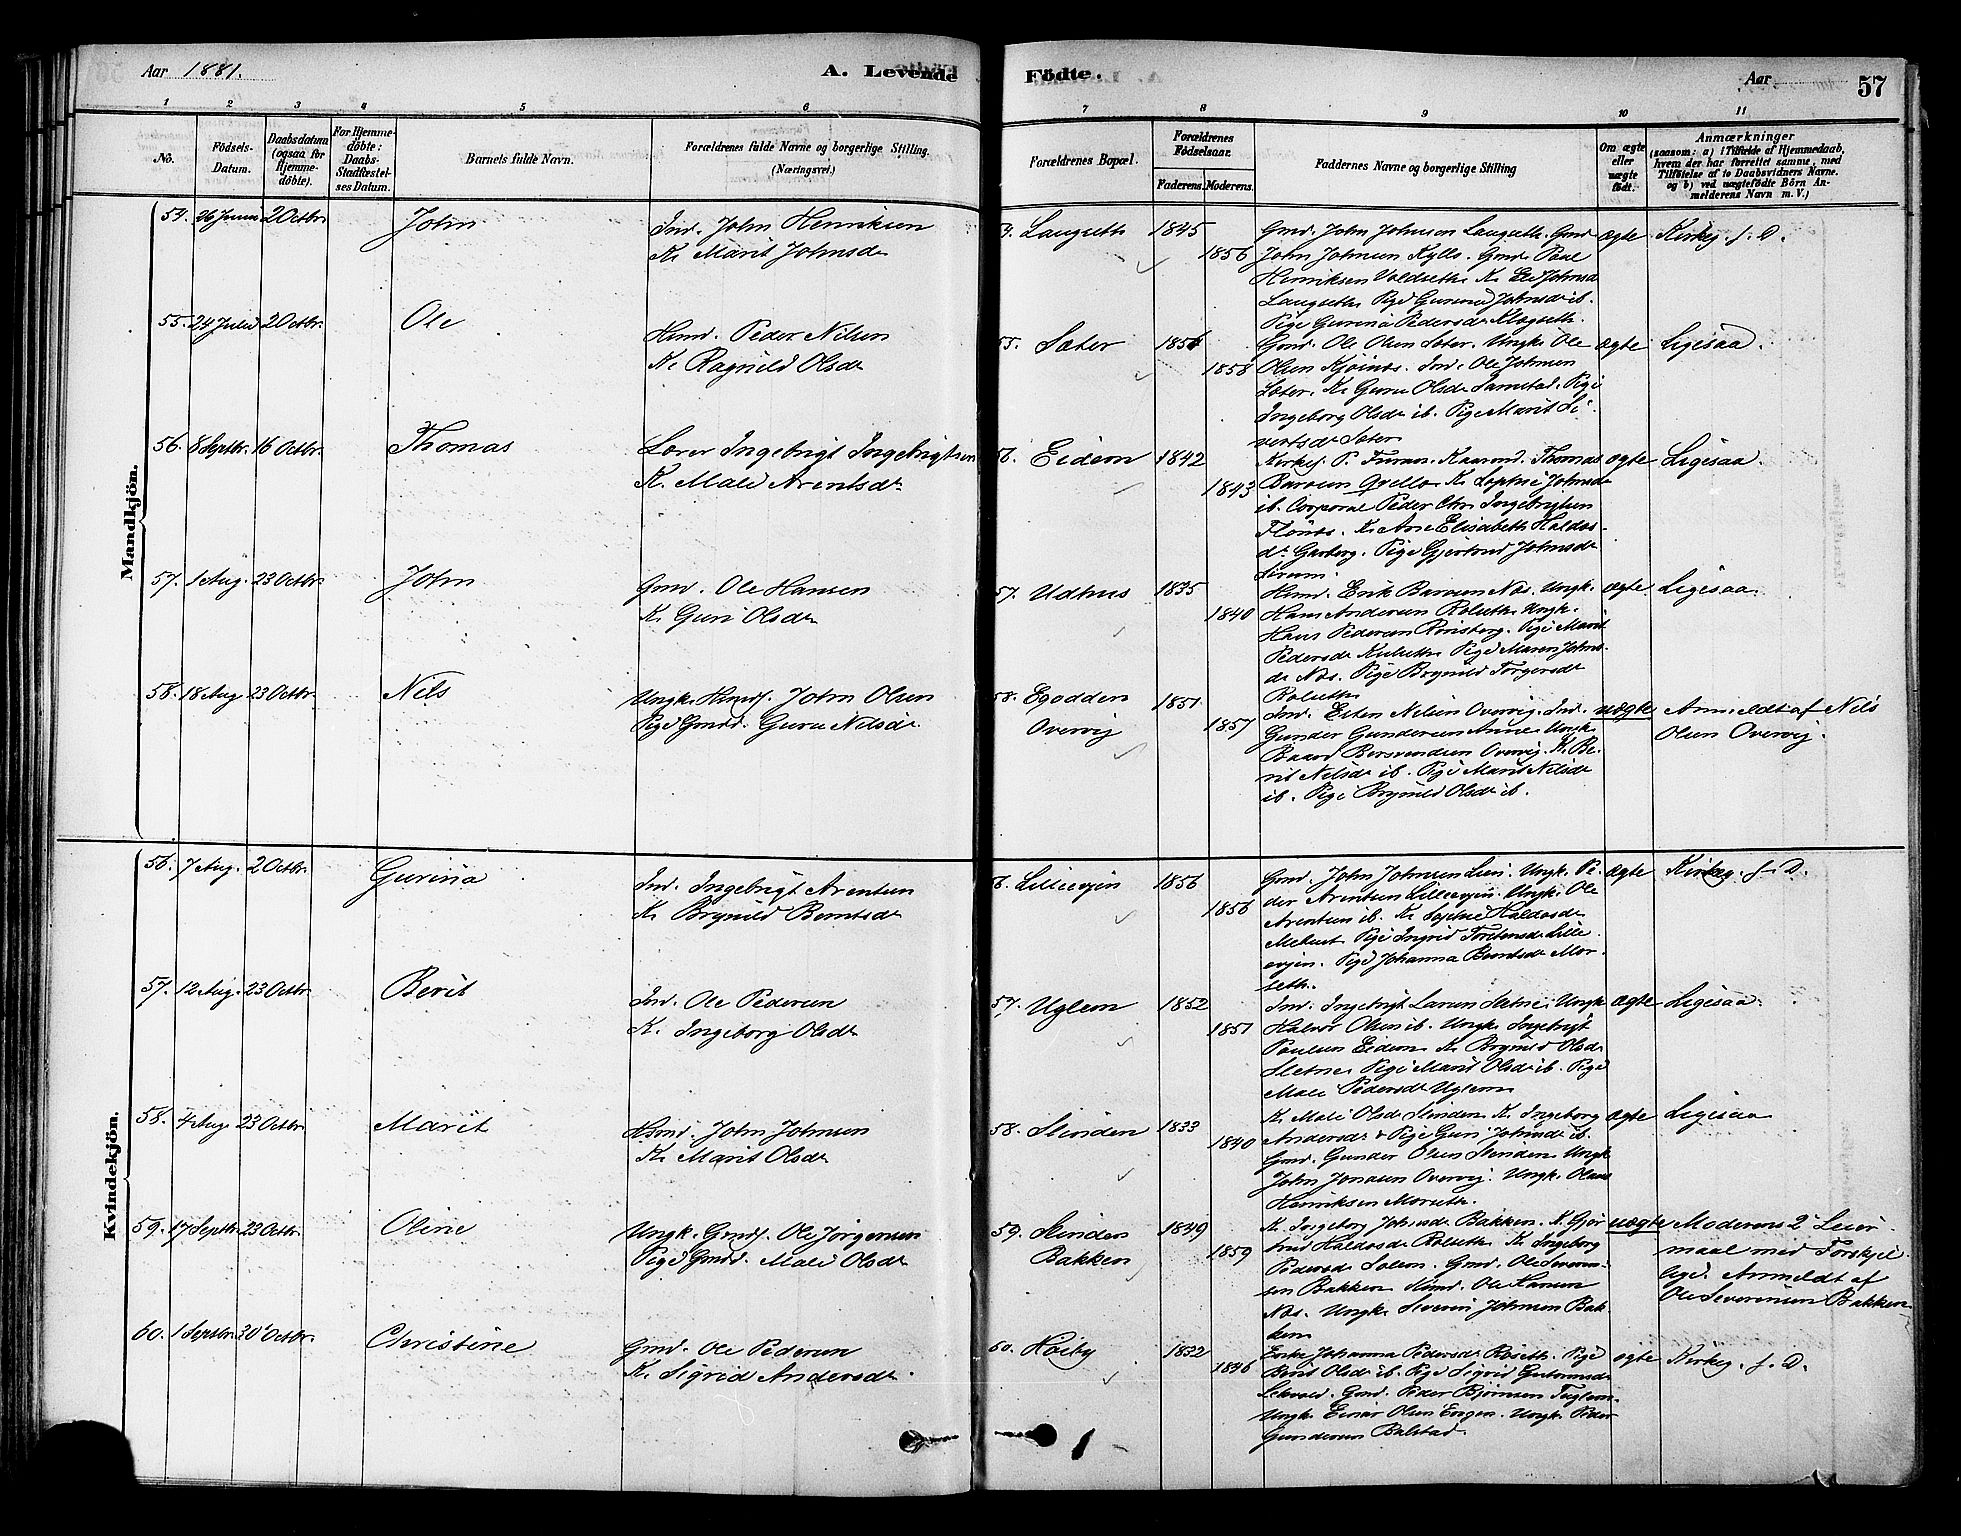 Aar 1881.
A. Levende Födte.
Aar
57
1 2 3 4 5 6 7 8 9 10 11
No.
Födsels-Datum.
Daabsdatum (ogsaa for Hjemme-döbte).
For Hjemme-döbte: Daabs-Stadfæstel-ses Datum.
Barnets fulde Navn.
Forældrenes fulde Navne og borgerlige Stilling. (Næringsvei.)
Forældrenes Bopæl.
Forældrenes Födselsaar.
Faderens. Moderens.
Faddernes Navne og borgerlige Stilling
Om ægte eller uægte födt.
Anmærkninger
(saasom: a) i Tilfælde af Hjemmedaab,
hvem der har forrettet samme, med
Tilföielse af to Daabsvidners Navne.
og b) ved uægtefödte Börn An-
melderens Navn m. V.)
Mandkjön.
54. 26 Juni 2 Octbr. John
Ind. John Henriksen
K. Marit Johnsdr
Langseth 1845 1856
Gmd. John Johnsen Langseth. Gmd
John Johnsen Kyllo. Gmd. Paul
Henriksen Voldseth. K. Eli Johnsd
Langseth. Pige Gurina Johnsdr ib.
Pige Gurina Pedersdr
ægte Kirkeg. f. D.
55. 24 Juli 2 Octbr. Ole
Hsmd. Peder Nilsen
K. Ragnild Olsdr
55. Sæter 1858
Gmd. Ole Olsen Sæter. Ungk. Ole
Olsen Kjösnes. Ind. Ole Johnsen
Sæter. K. Guru Olsdr Samstad. Pige
Ingeborg Olsdr ib. Pige Marit Si-
vertsdr Sæter
ægte Ligesaa.
56. 8 Septbr. 16 Octbr. Thomas
Lærer Ingebrigt Ingebrigtsen
K. Mali Arentsdr
56. Eidem 1842 1843
Kirkes. P. Furan. Gaarmd. Thomas
K. Sophie Johnsdr
ib. Corporal Peder Chr. Ingebrigtsen
Flönes. K. Ane Elisabeth Haldos-
dr Garberg. Pige Gjertrud Johnsdr
ægte Ligesaa.
57. 1 Aug. 23 Octbr. John
Gmd. Ole Hansen
K. Guri Olsdr
57. Udhus 1835 1840
Hsmd. Erik Næs. Ungk.
Hans Andersen Rolseth. Ungk.
Hans Pedersen Rönsberg. Pige Marit
Pedersdr Kulseth. Pige Maren Johns-
dr Næs. Pige Brynild Torgersdr
Rolseth
ægte Ligesaa.
58. 18 Aug 23 Octbr. Nils
Ungk. Hsmds. John Olsen
Pige Gmdd. Guru Nilsdr
58. Egodden
Overvig 1851 1857
Ind. Esten Nilsen Overvig. Ind.
Gunder Gundersen Aune. Ungk.
Baard Bersvendsen Overvig. K. Be-
rit Nilsdr ib. Pige Marit Nilsdr
ib. Pige Brynild Olsdr ib.
uægte
Anmeldt af Nils
Olsen Overvig.
Kvindekjön.
56. 7 Aug. 2 Octbr. Gurina
Ind. Ingebrigt Arentsen
K. Brynild Berntsdr
Lilleevjen 1856 1856
Gmd. John Johnsen Lien. Ungk. Pe-
der Arentsen Lilleevjen. Ungk. Ole
Arentsen ib. K. Sophie Haldosdr
Mebust. Pige Ingrid Torstensdr Lille-
evjen. Pige Johanna Berntsdr Mor-
seth.
ægte Kirkeg. f. D.
57. 12 Aug. 23 Octbr. Berit
Ind. Ole Pedersen
K. Ingeborg Olsdr
57. Uglem 1852 1851
Ind. Ingebrigt Larsen Sletne. Ungk
Halvor Olsen ib. Ungk. Ingebrigt
Paulsen Eidem. K. Brynild Olsdr
Sletne. Pige Marit Olsdr ib. Pige
Mali Pedersdr Uglem
ægte Ligesaa.
58. 4 Aug 23 Octbr. Marit
Hsmd. John Johnsen
K. Marit Olsdr
58. Slinden 1833 1840
K. Mali Olsdr Slinden. K. Ingeborg
Andersdr. Pige Guri Johnsdr ib.
Gmd. Gunder Olsen Slinden. Ungk
John Jonasen Overvig. Ungk. Olaus
Henriksen Morseth.
ægte Ligesaa
59. 17 Septbr. 23 Octbr. Oline
Ungk. Gmds. Ole Jörgensen
Pige Gmdd. Mali Olsdr
59. Slinden
Bakken 1849 1859
K. Ingeborg Johnsdr Bakken. K. Gjer-
trud Haldosdr Rolseth. K. Ingeborg
Pedersdr Solem. Gmd. Ole Severin-
sen Bakken. Hsmd. Ole Larsen
Næs. Ungk. Severin Johnsen Bak-
ken
uægte
Moderens 2d Leier-
maal med Forskjel-
lige. Anmeldt af
Ole Severinsen Bakken
60. 1 Septbr. 30 Octbr. Christine
Gmd. Ole Pedersen
K. Sigrid Andersdr
60. Höiby 1832 1846
Enke Johanna Pedersdr Röseth. Pige
Berit Olsdr ib. Pige Sigrid
Selvold. Gmd. Peder Björnsen Fuglem.
Ungk. Einar Olsen Engen. Ungk. Peder
Gundersen Balstad.
ægte Kirkeg. f. D.